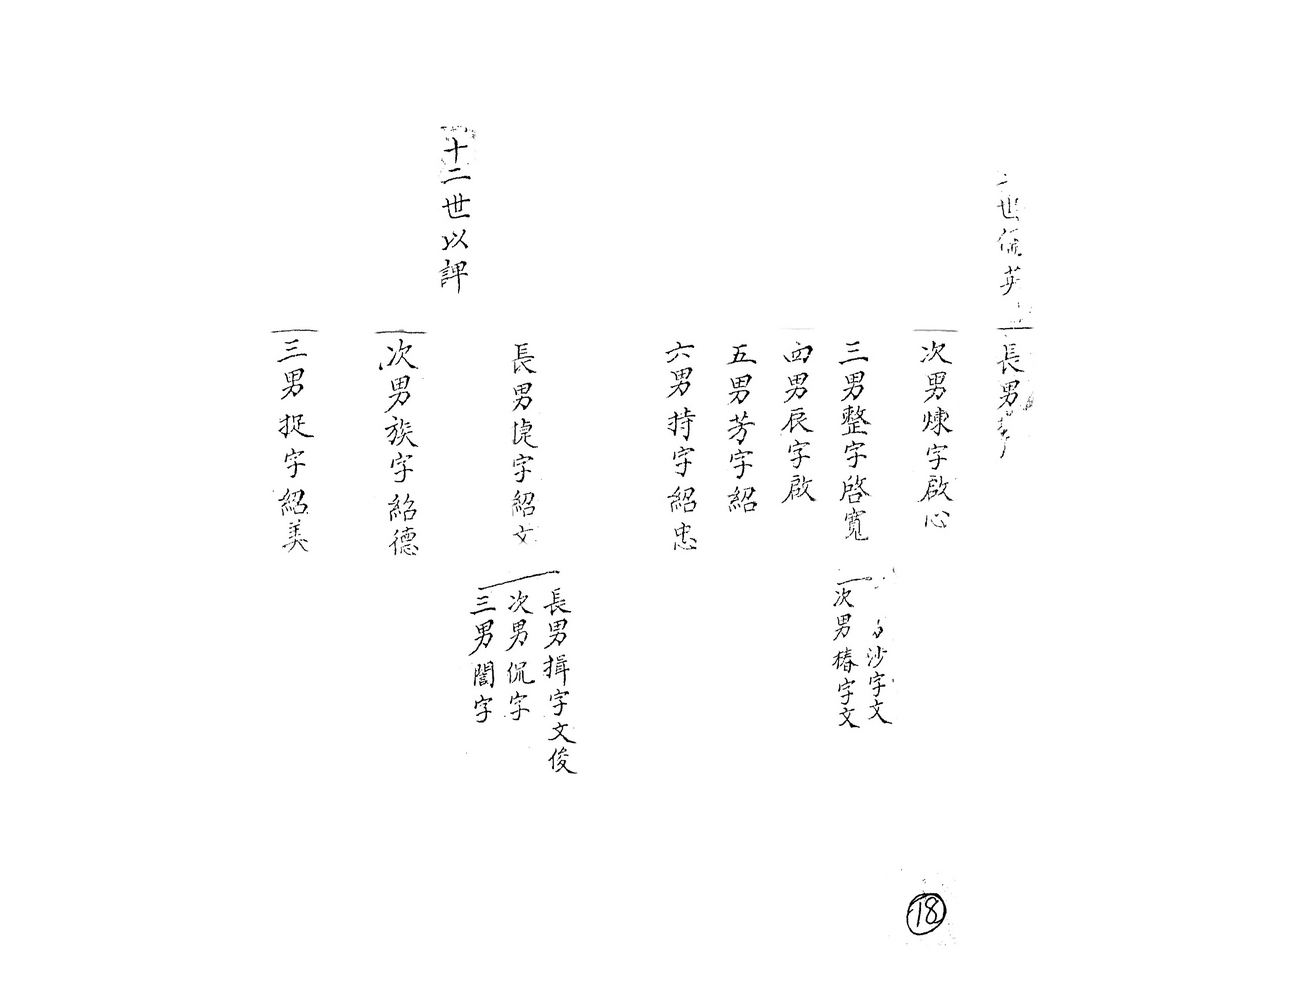 世 英
長男
次男煉字啟心
三男整字啓寬
沙字文
次男椿字文
四男辰字啟
五男芳字紹
六男持字紹忠
十二世以評
長男 字紹文
長男揖字文俊
次男侃字
三男誾字
次男族字紹德
三男捉字紹美
18